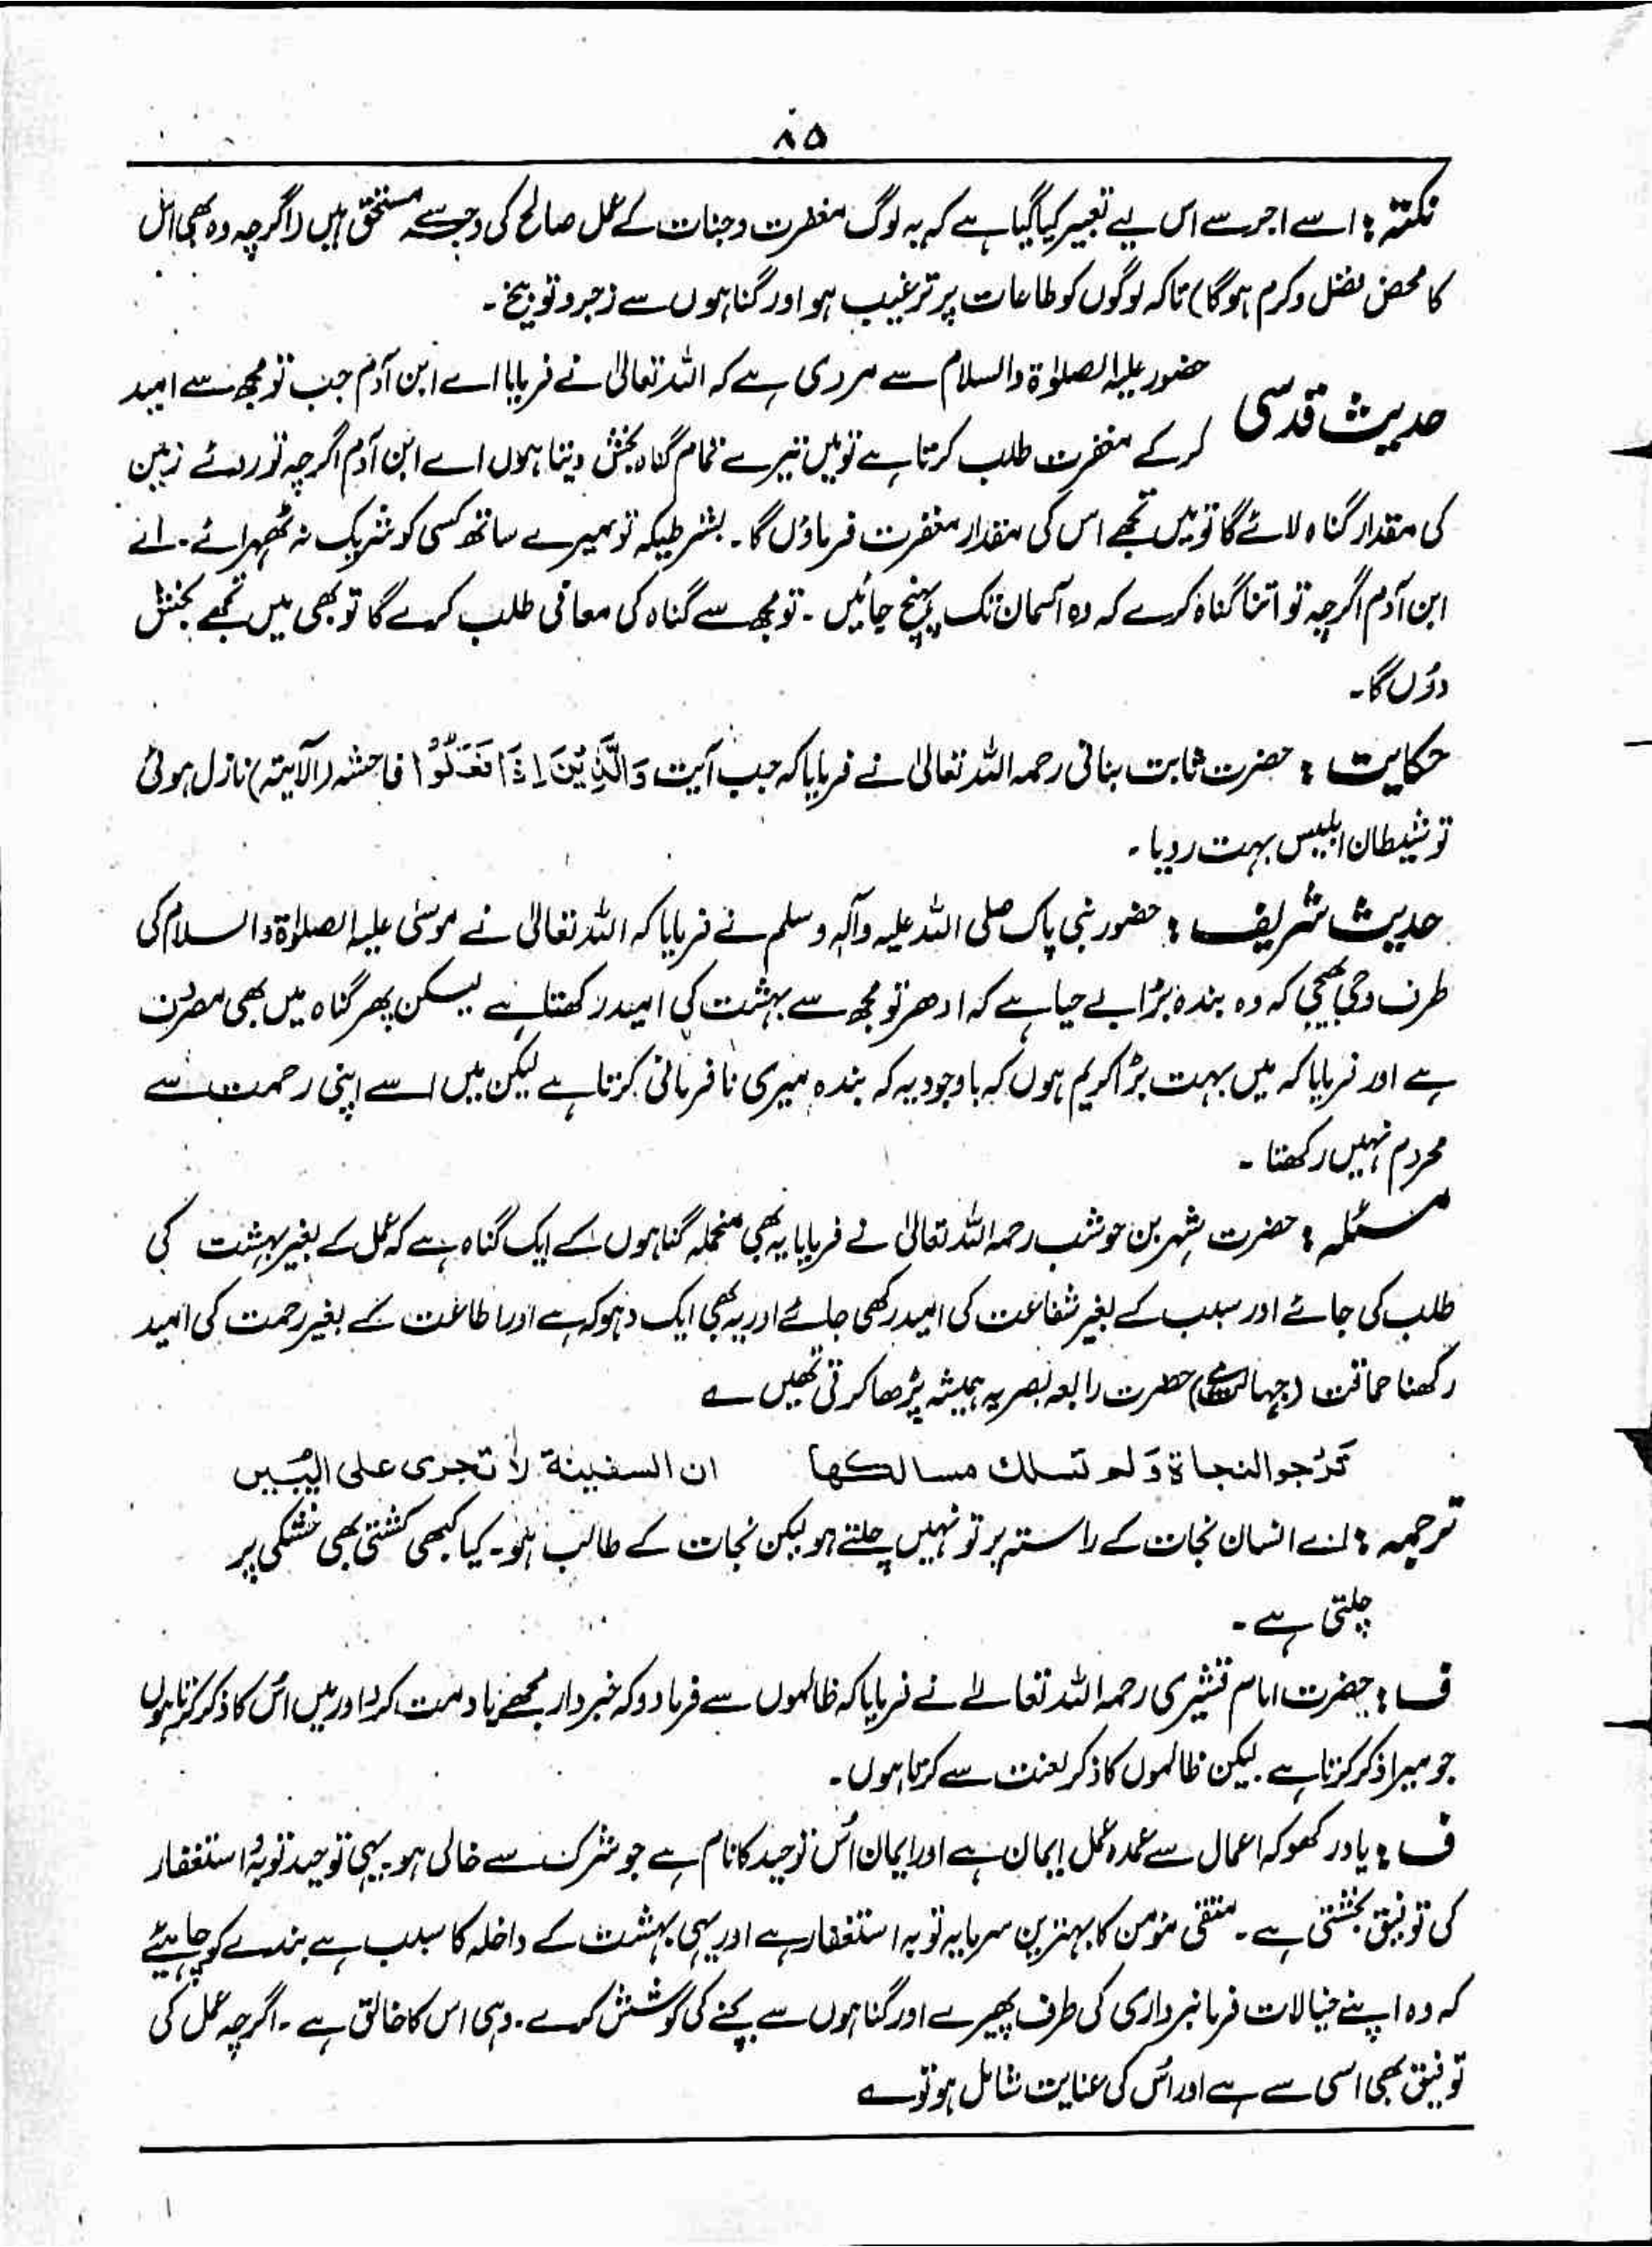 ۸۵
نکتہ : اسے اجر سے اس لیے تعبیر کیا گیا ہے کہ یہ لوگ مغفرت وجنات کے عمل صالح کی وجہ سے مستحق ہیں (اگرچہ وہ بھی اللہ
کا محض فضل وکرم ہوگا) تاکہ لوگوں کو طاعات پر ترغیب ہو اور گناہوں سے زجر و توبیخ ۔
حدیث قدسی حضور علیہ الصلوٰۃ والسلام سے مروی ہے کہ اللہ تعالیٰ نے فرمایا اے ابن آدم جب تو مجھ سے امید
کر کے مغفرت طلب کرتا ہے تو میں تیرے تمام گناہ بخش دیتا ہوں اے ابن آدم اگرچہ تو روئے زمین
کی مقدار گناہ لائے گا تو میں تجھے اس کی مقدار مغفرت فرماؤں گا ۔ بشرطیکہ تو میرے ساتھ کسی کو شریک نہ ٹھہرائے ۔ اے
ابن آدم اگرچہ تو اتنا گناہ کرے کہ وہ آسمان تک پہنچ جائیں ۔ تو مجھ سے گناہ کی معافی طلب کرے گا تو بھی میں تجھے بخش
دوں گا ۔
حکایت : حضرت ثابت بنانی رحمہ اللہ تعالیٰ نے فرمایا کہ جب آیت وَالَّذِیْنَ اِذَا فَعَلُوْا فاحشہ (الآیتہ) نازل ہوئی
تو شیطان ابلیس بہت رویا ۔
حدیث شریف : حضور نبی پاک صلی اللہ علیہ وآلہٖ وسلم نے فرمایا کہ اللہ تعالیٰ نے موسیٰ علیہ الصلوٰۃ والسلام کی
طرف وحی بھیجی کہ وہ بندہ بڑا بے حیا ہے کہ ادھر تو مجھ سے بہشت کی امید رکھتا ہے لیکن پھر گناہ میں بھی مصرف
ہے اور فرمایا کہ میں بہت بڑا کریم ہوں کہ باوجودیہ کہ بندہ میری نافرمانی کرتا ہے لیکن میں اسے اپنی رحمت سے
محروم نہیں رکھتا ۔
مسئلہ : حضرت شہر بن حوشب رحمہ اللہ تعالیٰ نے فرمایا یہ بھی منجملہ گناہوں کے ایک گناہ ہے کہ عمل کے بغیر بہشت کی
طلب کی جائے اور سبب کے بغیر شفاعت کی امید رکھی جائے اور یہ بھی ایک دہوکہ ہے اور اطاعت کے بغیر رحمت کی امید
رکھنا حماقت (جہالت ہے) حضرت رابعہ بصریہ ہمیشہ پڑھا کرتی تھیں ؎
تَرْجو النجاۃ وَلم تسلك مسالكها ان السفینۃ لا تجری علی الیَبَس
ترجمہ : اے انسان نجات کے راستہ پر تو نہیں چلتے ہو لیکن نجات کے طالب ہو ۔ کیا کبھی کشتی بھی خشکی پر
چلتی ہے ۔
ف : حضرت امام قشیری رحمہ اللہ تعالےٰ نے فرمایا کہ ظالموں سے فرما دو کہ خبردار مجھے یاد مت کرو اور میں اس کا ذکر کرتا ہوں
جو میرا ذکر کرتا ہے ۔ لیکن ظالموں کا ذکر لعنت سے کرتا ہوں ۔
ف : یاد رکھو کہ اعمال سے عمدہ عمل ایمان ہے اور ایمان اُس توحید کا نام ہے جو شرک سے خالی ہو یہی توحید توبہ استغفار
کی توفیق بخشتی ہے ۔ متقی مؤمن کا بہترین سرمایہ توبہ استغفار ہے اور یہی بہشت کے داخلہ کا سبب ہے بندے کو چاہیئے
کہ وہ اپنے خیالات فرمانبرداری کی طرف پھیرے اور گناہوں سے بچنے کی کوشش کرے ۔ وہی اس کا خالق ہے ۔ اگرچہ عمل کی
توفیق بھی اسی سے ہے اور اُس کی عنایت شامل ہو تو ؎